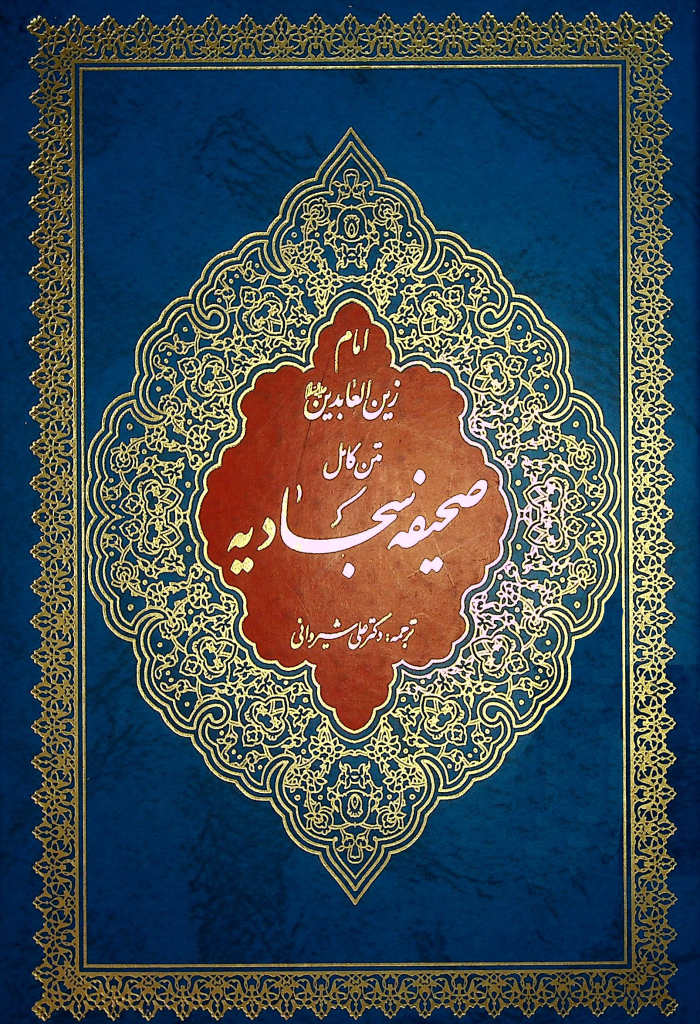 امام
زین العابدین علیه‌السلام
متن کامل
صحیفه سجادیه
ترجمه: دکتر علی شیروانی